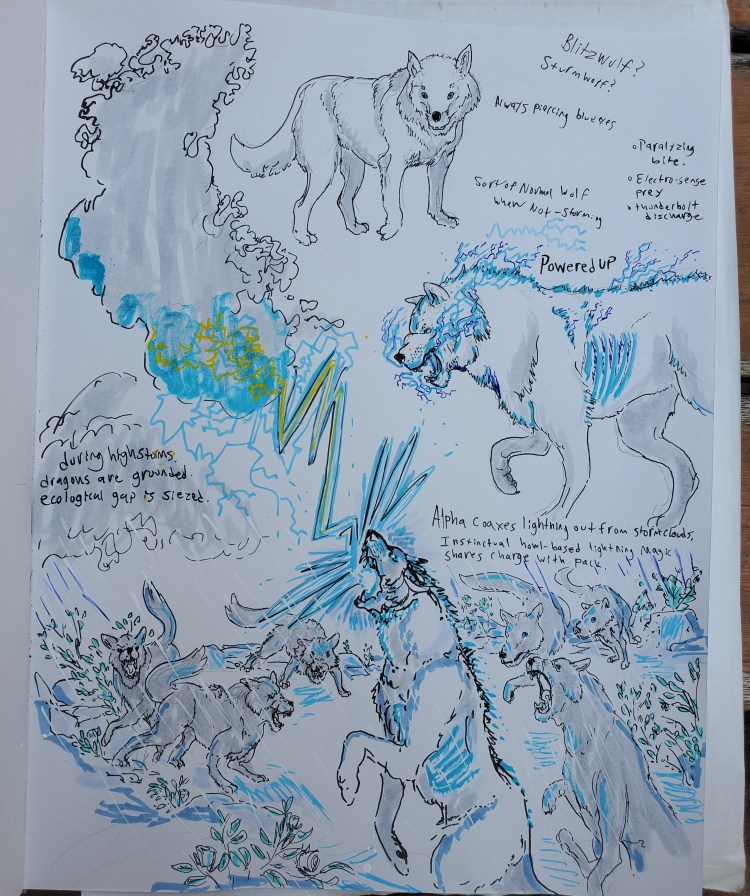 Blitzwulf?
Sturmwolf?
Always piercing blue eyes
• Paralyzing
bite.
• Electro-sense
prey
• thunderbolt
discharge
Sort of Normal Wolf
when Not-storming
Powered UP
during highstorms.
dragons are grounded.
ecological gap is siezed.
Alpha coaxes lightning out from stormclouds,
Instinctual howl-based lightning Magic
shares charge with pack